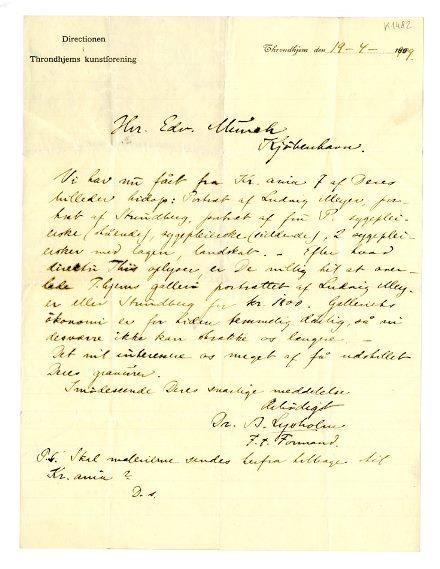 K1482
Directionen
i
Throndhjems kunstforening
Throndhjem den 19-4- 1909.
Hr. Edv. Munch
Kjøbenhavn.
Vi har nu fået fra Kr.ania 7 af Deres
billeder hidop: Portræt af Ludvig Meyer, por-
træt af Strindberg, portræt af frü P. sygeplei-
erske (stående), sygepleierske (siddende), 2 sygeplei-
ersker med lagen, landskab. – Efter hvad
direktør Thiis oplyser, er De villig til at over-
lade T.hjems galleri portrættet af Ludvig Mey-
er eller Strindberg for kr. 1800. Galleriets
økonomi er for tiden temmelig dårlig, så vi
desværre ikke kan strække os længere. –
Det vil interessere os meget af få udstillet
Deres gravürer.
Imødeseende Deres snarlige meddelelse
Ærbødigst
Dr. A. Lysholm
F.t. Formand.
P.S. Skal malerierne sendes herfra tilbage til
Kr.ania?
D.s.